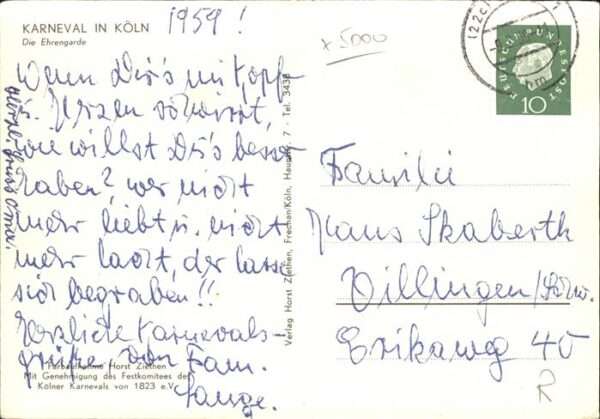 KARNEVAL IN KÖLN
Die Ehrengarde
1959!
x 5000
Wenn Dir's mit Kopf
u. Herzen schwirrt,
wie willst Du's besser
haben? wer nicht
mehr liebt u. nicht
mehr lacht, der lasse
sich begraben!!
Herzliche Karnevals-
grüße von Fam.
Lange.
Herzl. Gruss Oma.
Farbaufnahme Horst Ziethen
Mit Genehmigung des Festkomitees des
Kölner Karnevals von 1823 e.V.
Verlag Horst Ziethen, Frechen/Köln, 7 - Tel. 3438
(22c)
DEUTSCHE BUNDESPOST
10
Familie
Hans Skaberth
Villingen/Schw.
Erikaweg 40
R